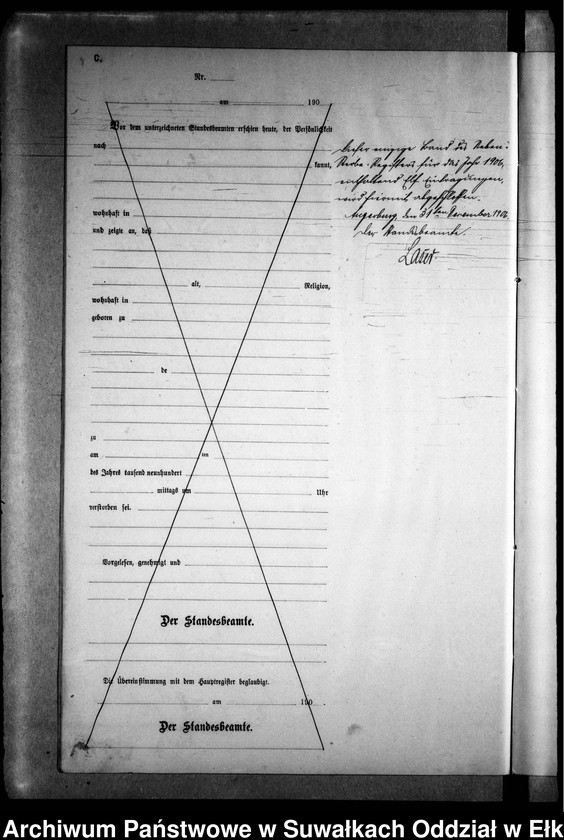 C.
Nr.
am 190
Vor dem unterzeichneten Standesbeamten erschien heute, der Persönlichkeit
nach
kannt,
wohnhaft in
und zeigte an, daß
alt, Religion,
wohnhaft in
geboren zu
de
zu
am ten
des Jahres tausend neunhundert
mittags um Uhr
verstorben sei.
Vorgelesen, genehmigt und
Der Standesbeamte.
Die Übereinstimmung mit dem Hauptregister beglaubigt.
am 190
Der Standesbeamte.
Dieser einzige Band des Neben-
Sterbe-Registers für das Jahr 1906,
enthaltend Elf Eintragungen,
wird hiermit abgeschlossen.
Angerburg, den 31ten December 1906
Der Standesbeamte.
Archiwum Państwowe w Suwałkach Oddział w Ełk